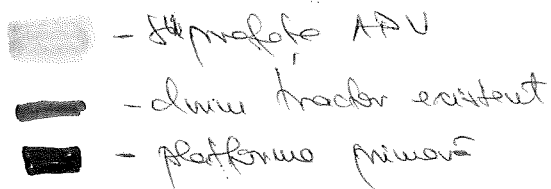 - suprafața APV
- drum tractor existent
- platforma primară